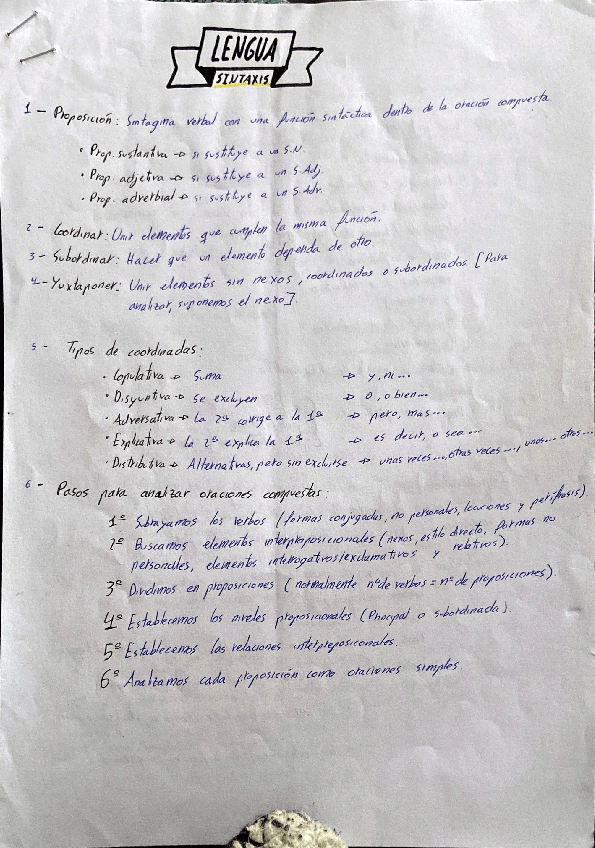 LENGUA
SINTAXIS
1 - Proposición: Sintagma verbal con una función sintáctica dentro de la oración compuesta.
· Prop. sustantiva → si sustituye a un S.N.
· Prop. adjetiva → si sustituye a un S.Adj.
· Prop. adverbial → si sustituye a un S.Adv.
2 - Coordinar: Unir elementos que cumplen la misma función.
3 - Subordinar: Hacer que un elemento dependa de otro
4 - Yuxtaponer: Unir elementos sin nexos, coordinados o subordinados. [Para
analizar, suponemos el nexo].
5 - Tipos de coordinadas:
· Copulativa → Suma → y, ni...
· Disyuntiva → Se excluyen → o, o bien...
· Adversativa → La 2ª corrige a la 1ª → pero, mas...
· Explicativa → la 2ª explica la 1ª → es decir, o sea...
· Distributiva → Alternativas, pero sin excluirse → unas veces..., otras veces..., unos... otros...
6 - Pasos para analizar oraciones compuestas:
1º Subrayamos los verbos (formas conjugadas, no personales, locuciones y perífrasis).
2º Buscamos elementos interproposicionales (nexos, estilo directo, formas no
personales, elementos interrogativos/exclamativos y relativos).
3º Dividimos en proposiciones (normalmente nº de verbos = nº de proposiciones).
4º Establecemos los niveles proposicionales (Principal o subordinada)
5º Establecemos las relaciones interproposicionales.
6º Analizamos cada proposición como oraciones simples